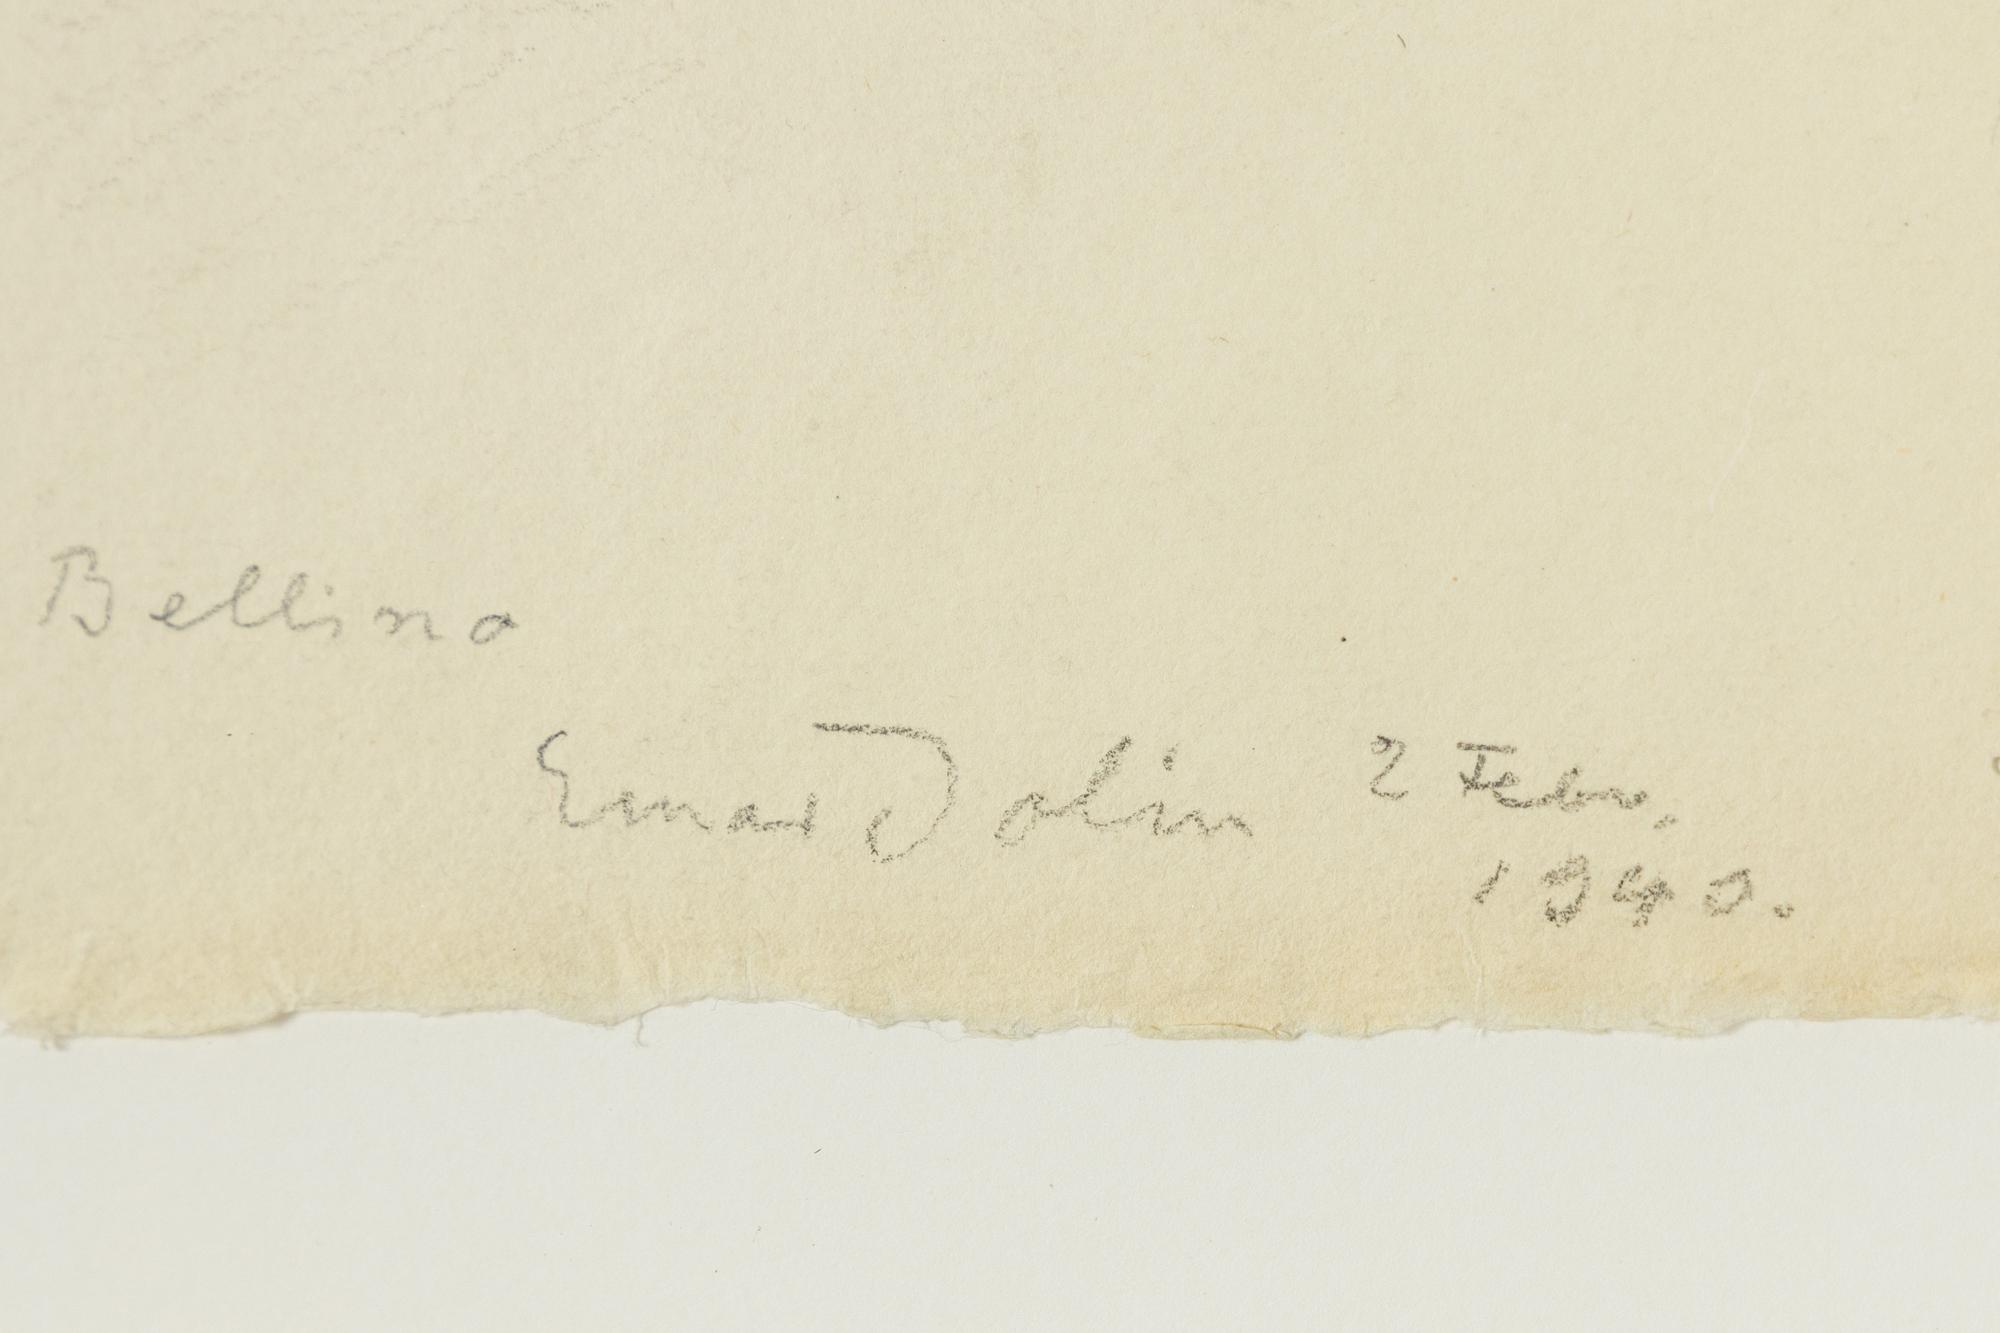 Bellino
Einar Jolin 2 Febr.
1940.